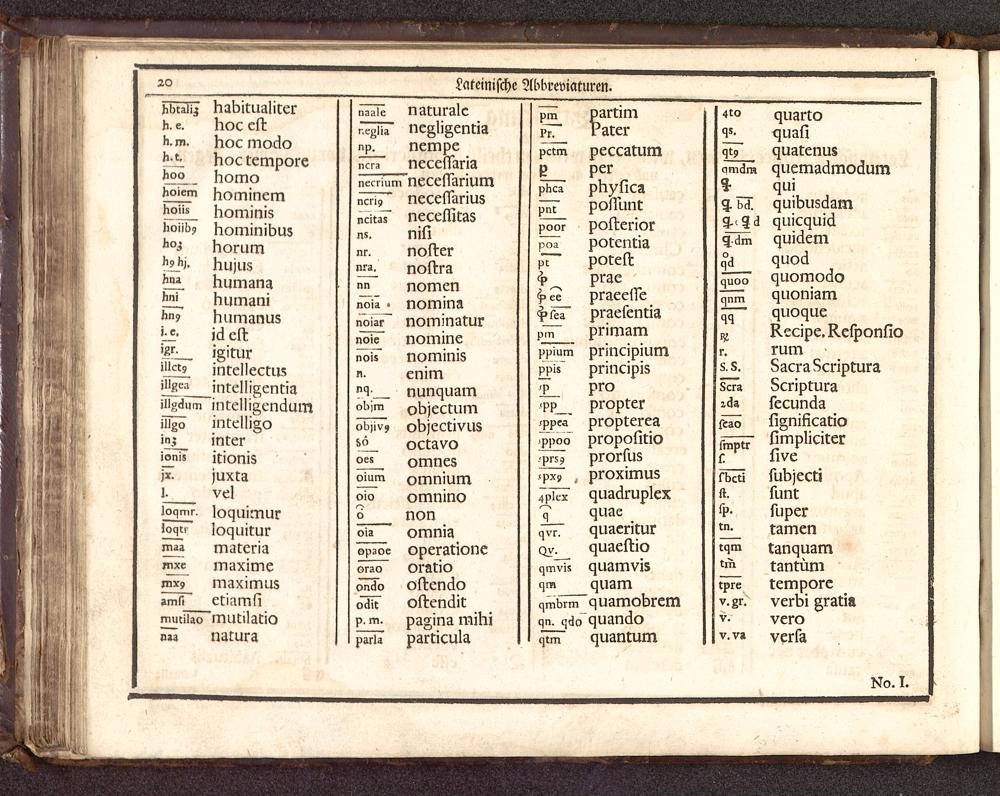 20
Lateinische Abbreviaturen.
hbtaliʒ habitualiter
h. e. hoc eſt
h. m. hoc modo
h. t. hoc tempore
hoo homo
hoiem hominem
hoiis hominis
hoiibꝯ hominibus
hoʒ horum
hꝯ hj. hujus
hna humana
hni humani
hnꝯ humanus
i. e. id eſt
igr. igitur
illctꝯ intellectus
illgea intelligentia
illgdum intelligendum
illgo intelligo
inʒ inter
ionis itionis
jx. juxta
l. vel
loqmr. loquimur
loqtr loquitur
maa materia
mxe maxime
mxꝯ maximus
amſi etiamſi
mutilao mutilatio
naa natura
naale naturale
n.eglia negligentia
np. nempe
ncra neceſſaria
necrium neceſſarium
ncriꝯ neceſſarius
ncitas neceſſitas
ns. niſi
nr. noſter
nra. noſtra
nn nomen
noia nomina
noiar nominatur
noie nomine
nois nominis
n. enim
nq. nunquam
objm objectum
objivꝯ objectivus
8ó octavo
oes omnes
oium omnium
oio omnino
o non
oia omnia
opaoe operatione
orao oratio
ondo oſtendo
odit oſtendit
p. m. pagina mihi
parla particula
pm partim
Pr. Pater
pctm peccatum
ꝑ per
phca phyſica
pnt poſſunt
poor poſterior
poa potentia
pt poteſt
prae
ee praeeſſe
ſea praeſentia
pm primam
ppium principium
ppis principis
pro
propter
propterea
propoſitio
prorſus
proximus
4plex quadruplex
q quae
qvr. quaeritur
Qv. quaeſtio
qmvis quamvis
qm quam
qmbrm quamobrem
qn. qdo quando
qtm quantum
4to quarto
qs. quaſi
qtꝯ quatenus
qmdm quemadmodum
qui
q. bd. quibusdam
quicquid
q.dm quidem
qd quod
quoo quomodo
qnm quoniam
qq quoque
℞ Recipe, Reſponſio
r. rum
S. S. Sacra Scriptura
Scra Scriptura
2da ſecunda
ſeao ſignificatio
ſmptr ſimpliciter
ſ. ſive
ſbcti ſubjecti
ſt. ſunt
ſp. ſuper
tn. tamen
tqm tanquam
tm̄ tantùm
tpre tempore
v. gr. verbi gratia
v. vero
v. va verſa
No. I.